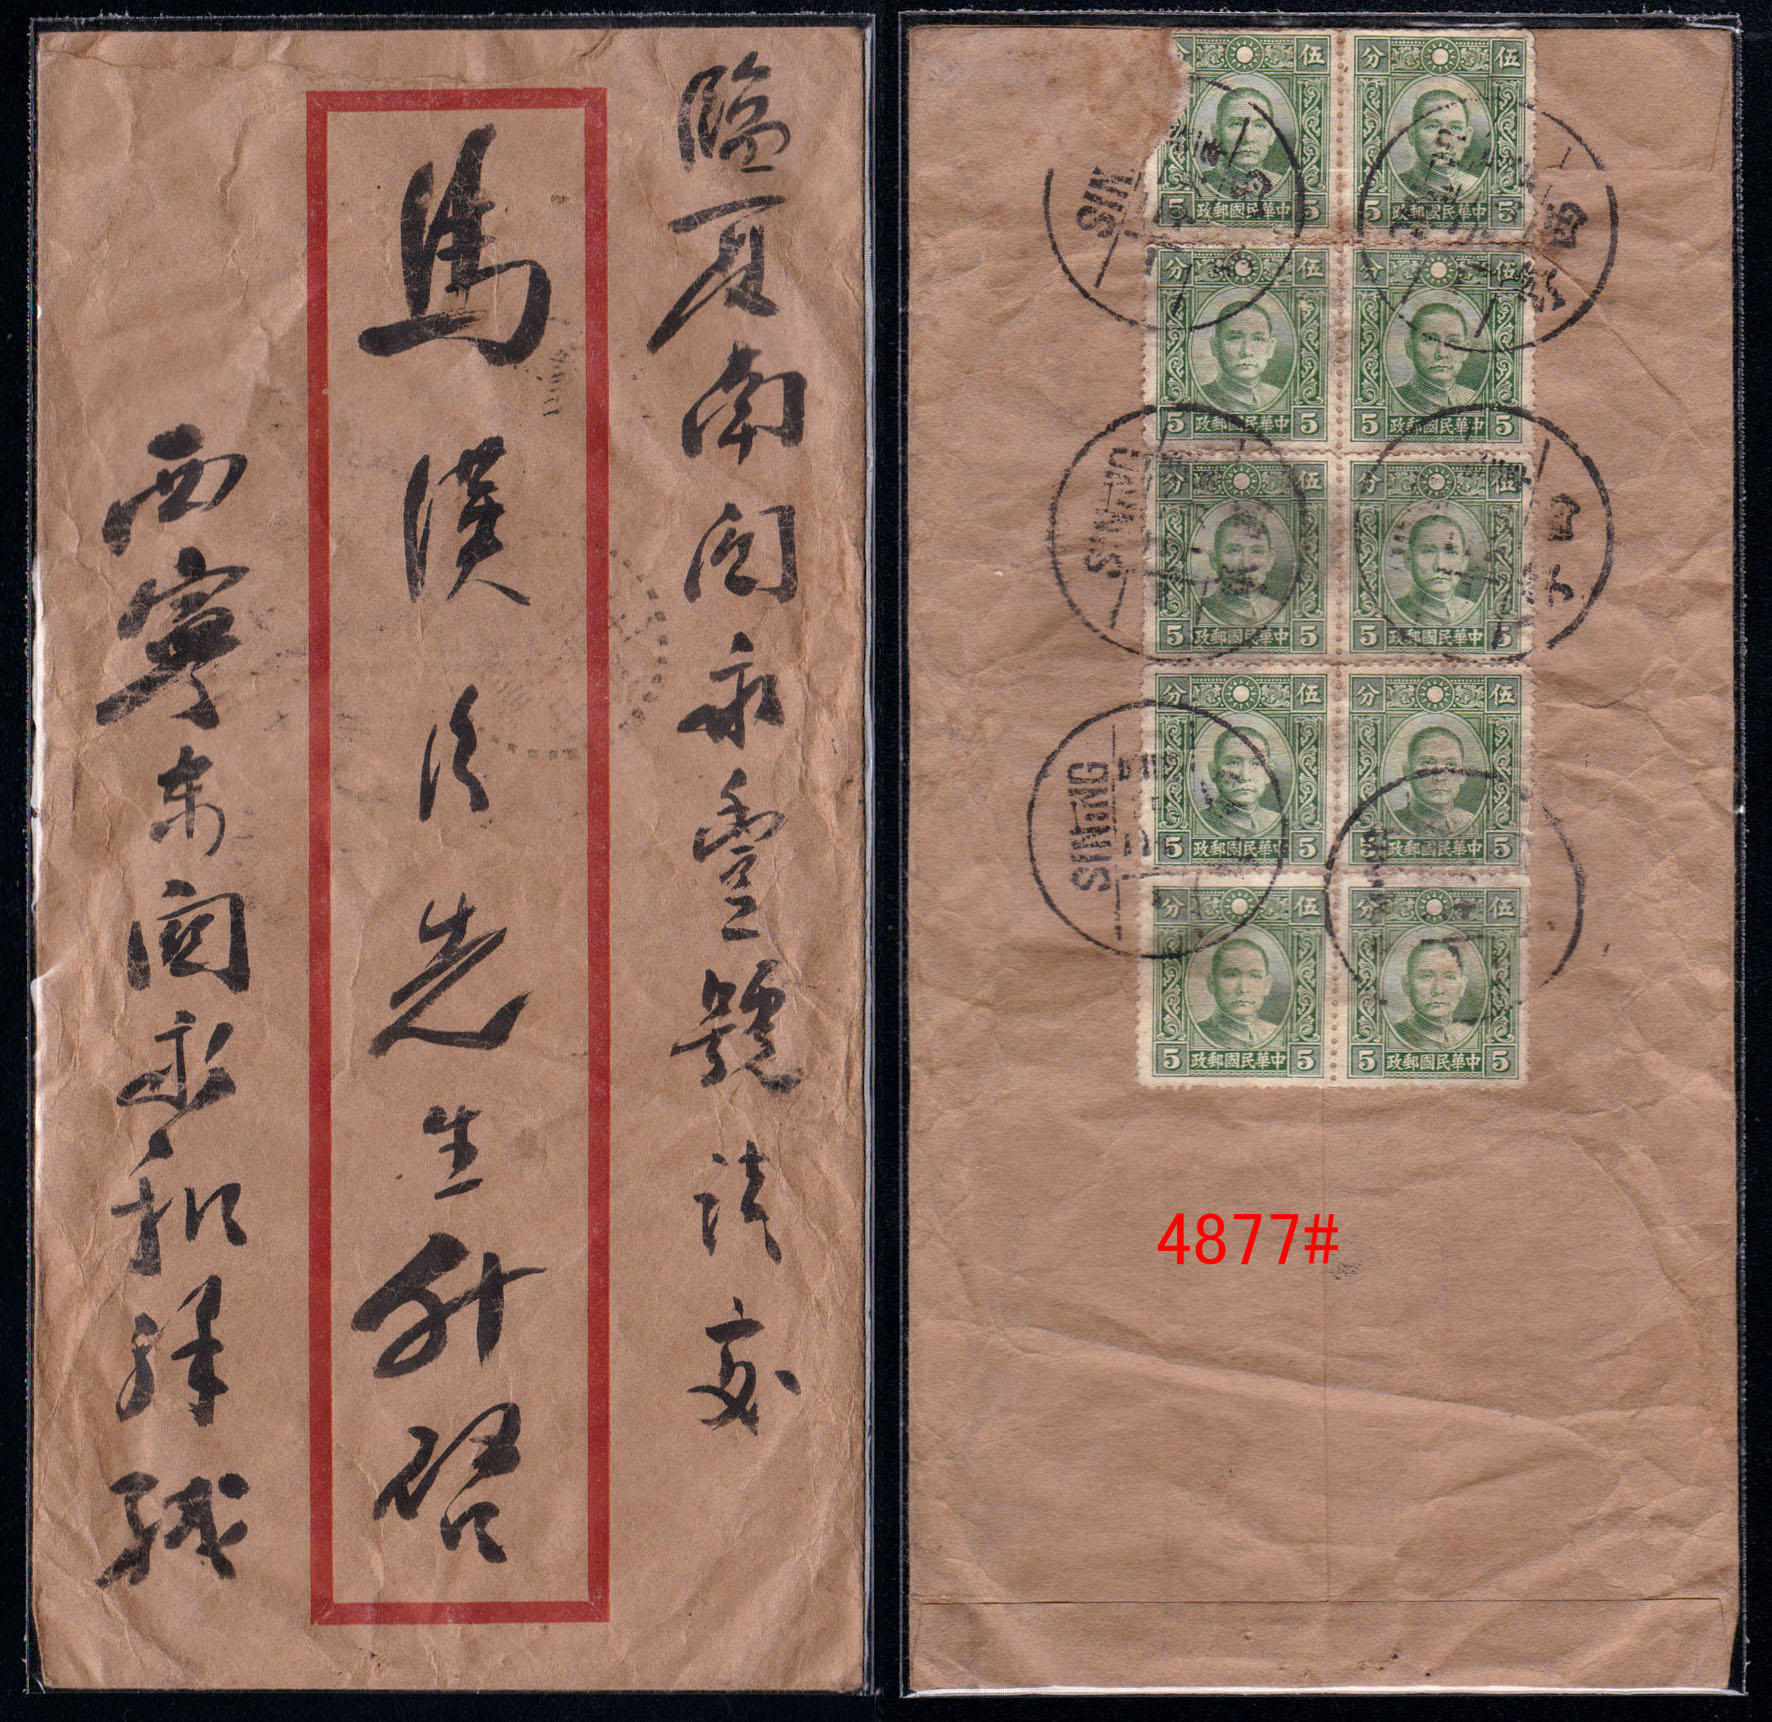 臨夏南關永豐號請交
馬漢先生升啓
西寧東關永和祥緘
伍分
5 中華民國郵政 5
伍分
5 中華民國郵政 5
伍分
5 中華民國郵政 5
伍分
5 中華民國郵政 5
伍分
5 中華民國郵政 5
伍分
5 中華民國郵政 5
伍分
5 中華民國郵政 5
伍分
5 中華民國郵政 5
伍分
5 中華民國郵政 5
伍分
5 中華民國郵政 5
SINING
SINING
4877#